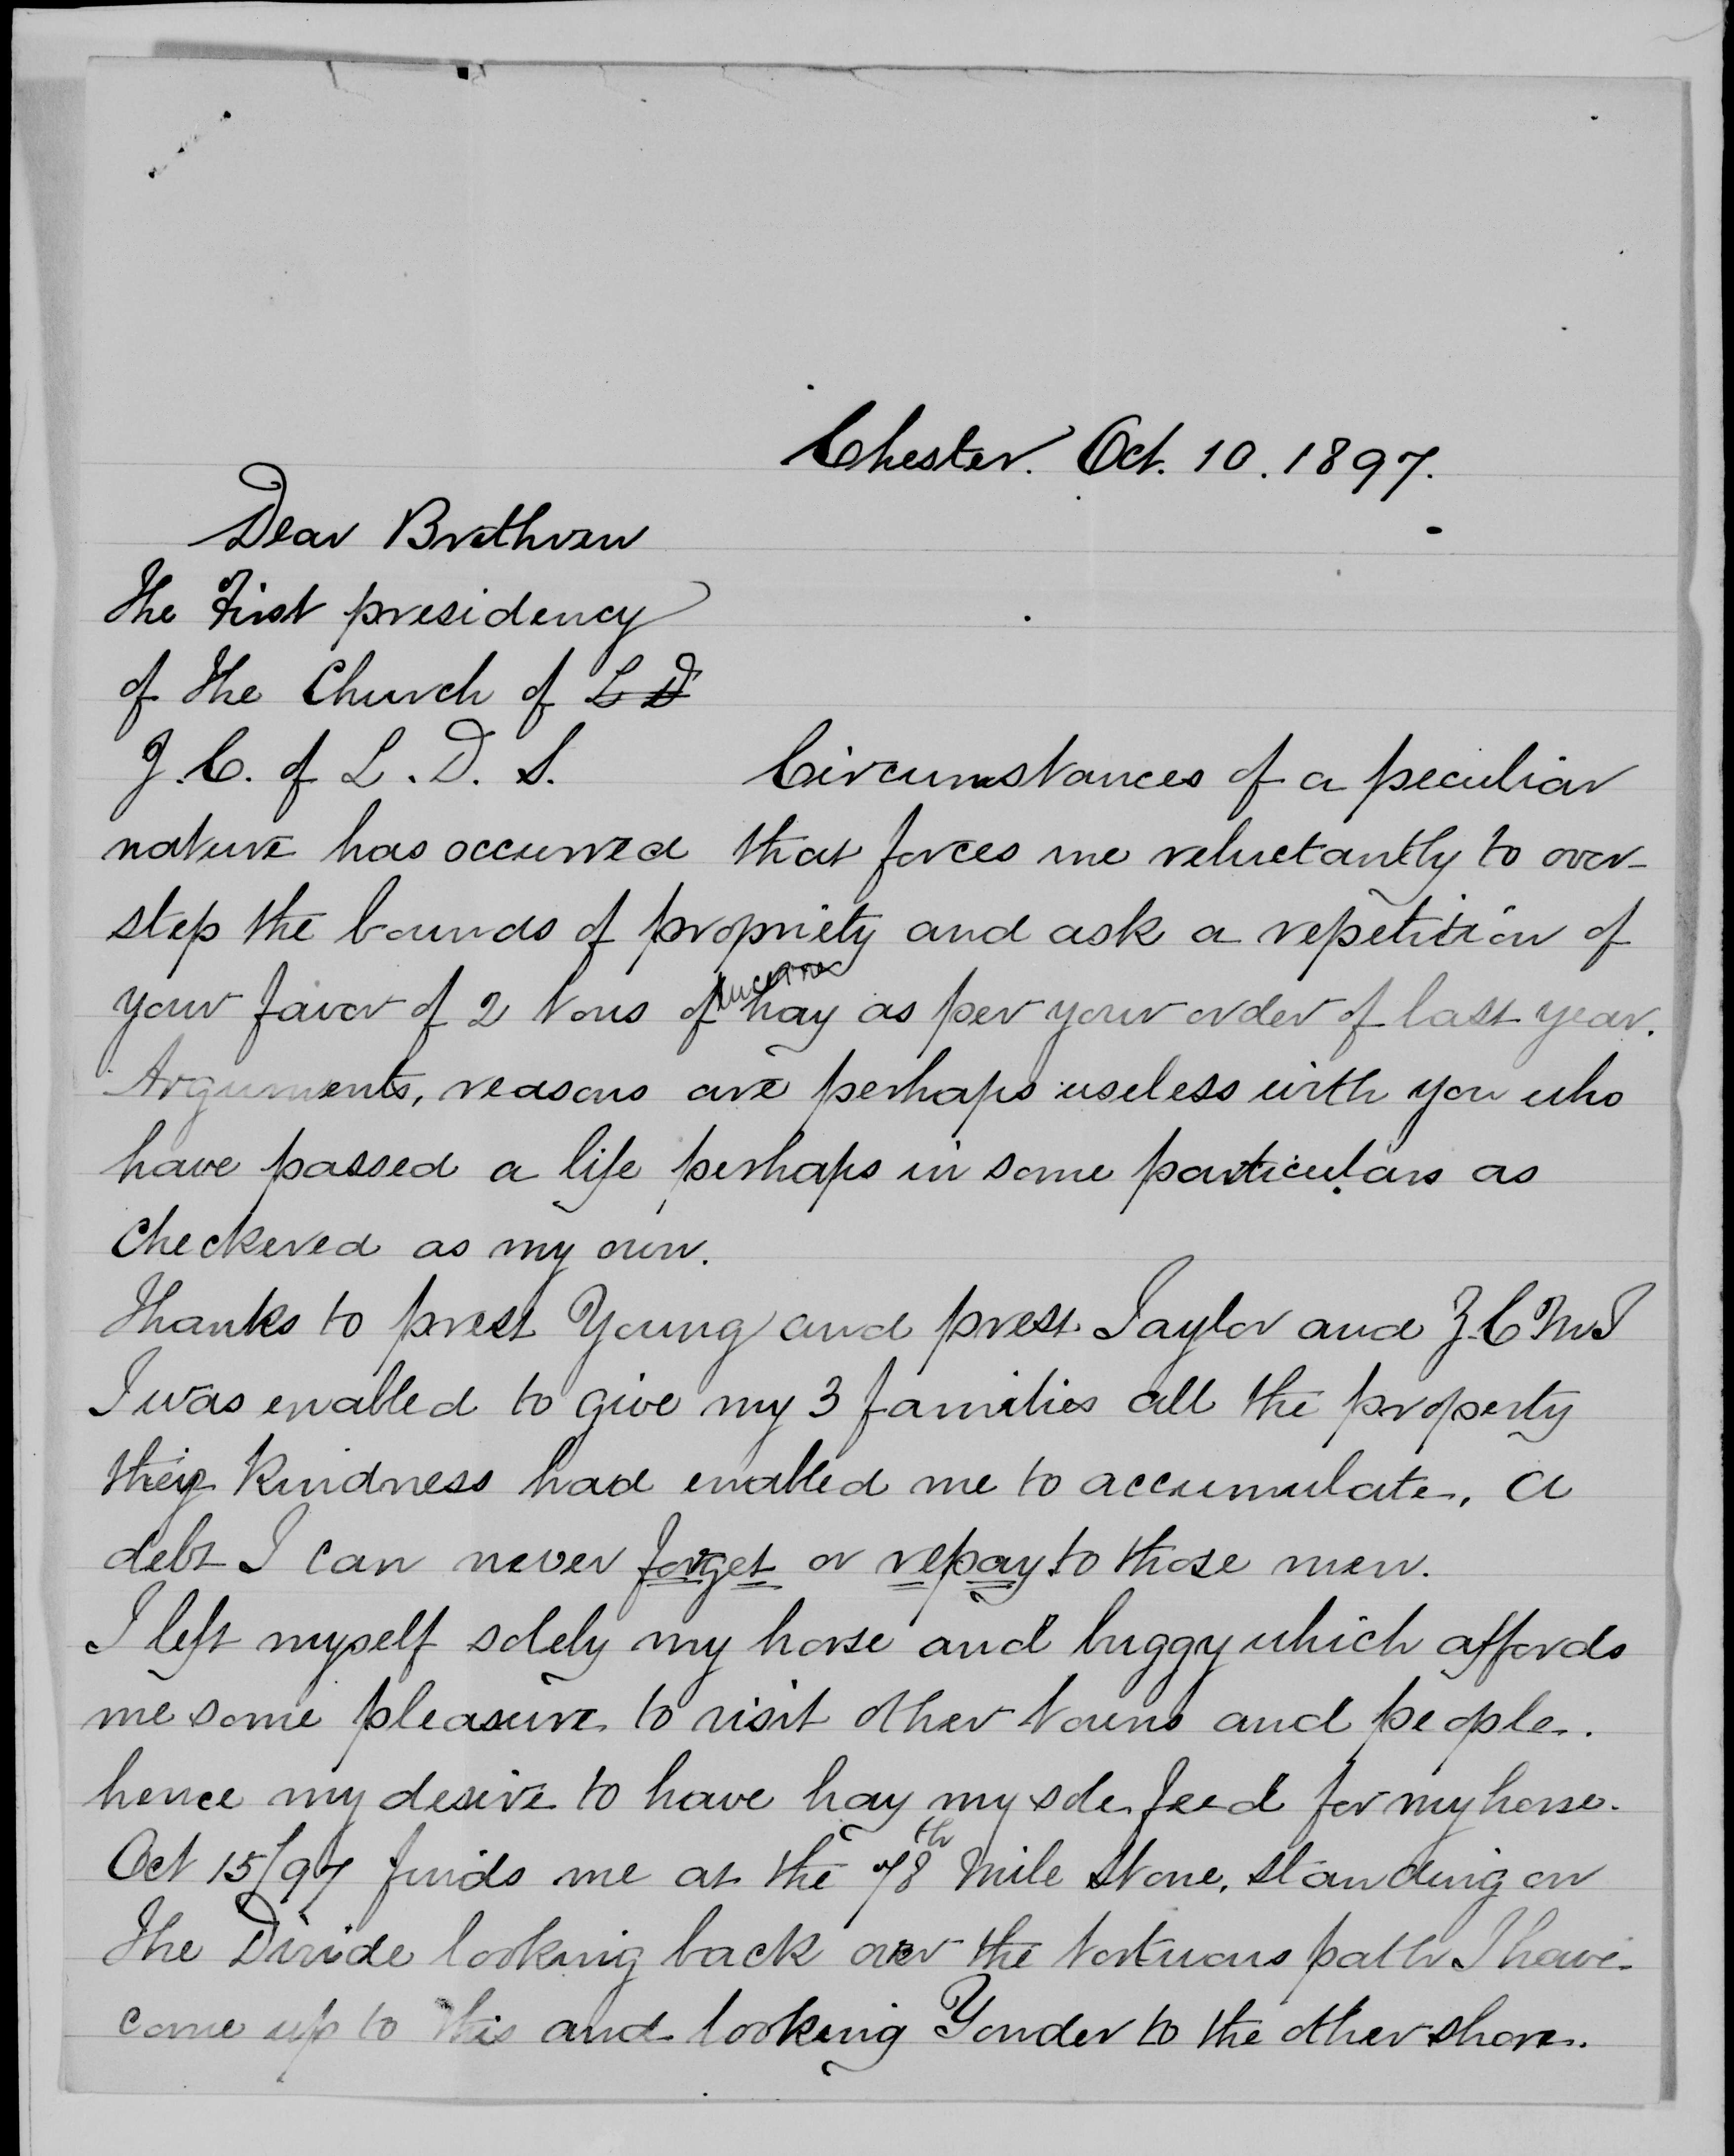 Chester. Oct. 10. 1897.
Dear Brethren
The First presidency
of the Church of L D
J. C. of L. D. S. Circumstances of a peculiar
nature has occurred that forces me reluctantly to over-
step the bounds of propriety and ask a repetition of
your favor of 2 tons of lucerne hay as per your order of last year.
Arguments, reasons are perhaps useless with you who
have passed a life perhaps in some particulars as
checkered as my own.
Thanks to prest Young and prest Taylor and Z.C.M.I
I was enabled to give my 3 families all the property
their kindness had enabled me to accumulate. a
debt I can never forget or repay to those men.
I left myself solely my horse and buggy which affords
me some pleasure to visit other towns and people.
hence my desire to have hay my sole feed for my horse.
Oct 15/97 finds me at the 78th Mile Stone, standing on
The Divide looking back over the tortuous path I have
come up to this and looking Yonder to the other shore.